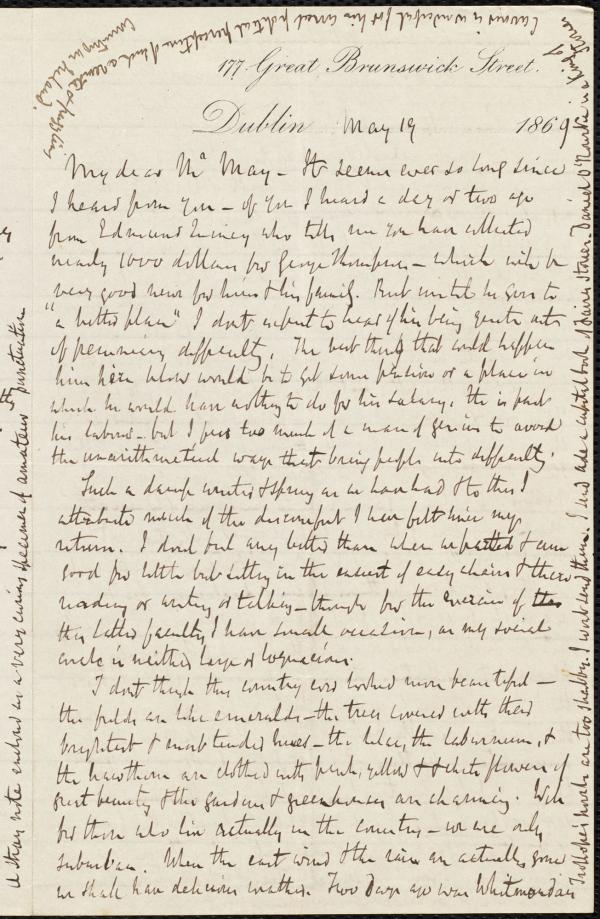 177 Great Brunswick Street.
Dublin May 19 1869
My dear Mr May - It seems ever so long since
I heard from you - of you I heard a day or two ago
from Edmund Quincy who tells me you have collected
nearly 1000 dollars for George Thompson - which will be
very good news for him & his family. But until he goes to
"a better place" I don't expect to hear of his being quite out
of pecuniary difficulty. The best thing that could happen
him here below would be to get some pension or a place in
which he would have nothing to do for his salary. He is past
his labour - but I fear too much of a man of genius to avoid
the unarithmetical ways that bring people into difficulty.
Such a damp winter & spring as we have had & to this I
attribute much of the discomfort I have felt since my
return. I don't feel any better than when we parted & am
good for little but sitting in the easiest of easy chairs & there
reading or writing or talking - though for the exercise of
this latter faculty I have small occasion, as my social
circle is neither large or loquacious.
I don't think this country ever looked more beautiful -
the fields are like emeralds - the trees covered with their
brightest & most tender hues - the lilac, the laburnum, &
the hawthorn are clothed with pink, yellow & white flowers of
great beauty & the gardens & greenhouses are charming.
for those who live actually in the country - we are only
suburban. When the east wind & the rain are actually gone
we shall have delicious weather. Two days ago was Whitmonday
Trollope's novels are too shabby. I won't send them. I send also a capital book of Fairy stories. Daniel O'Rourke is a
is wonderful for his
country is Ireland.
a than note enclosed as a very curious specimen of amateur punctuation